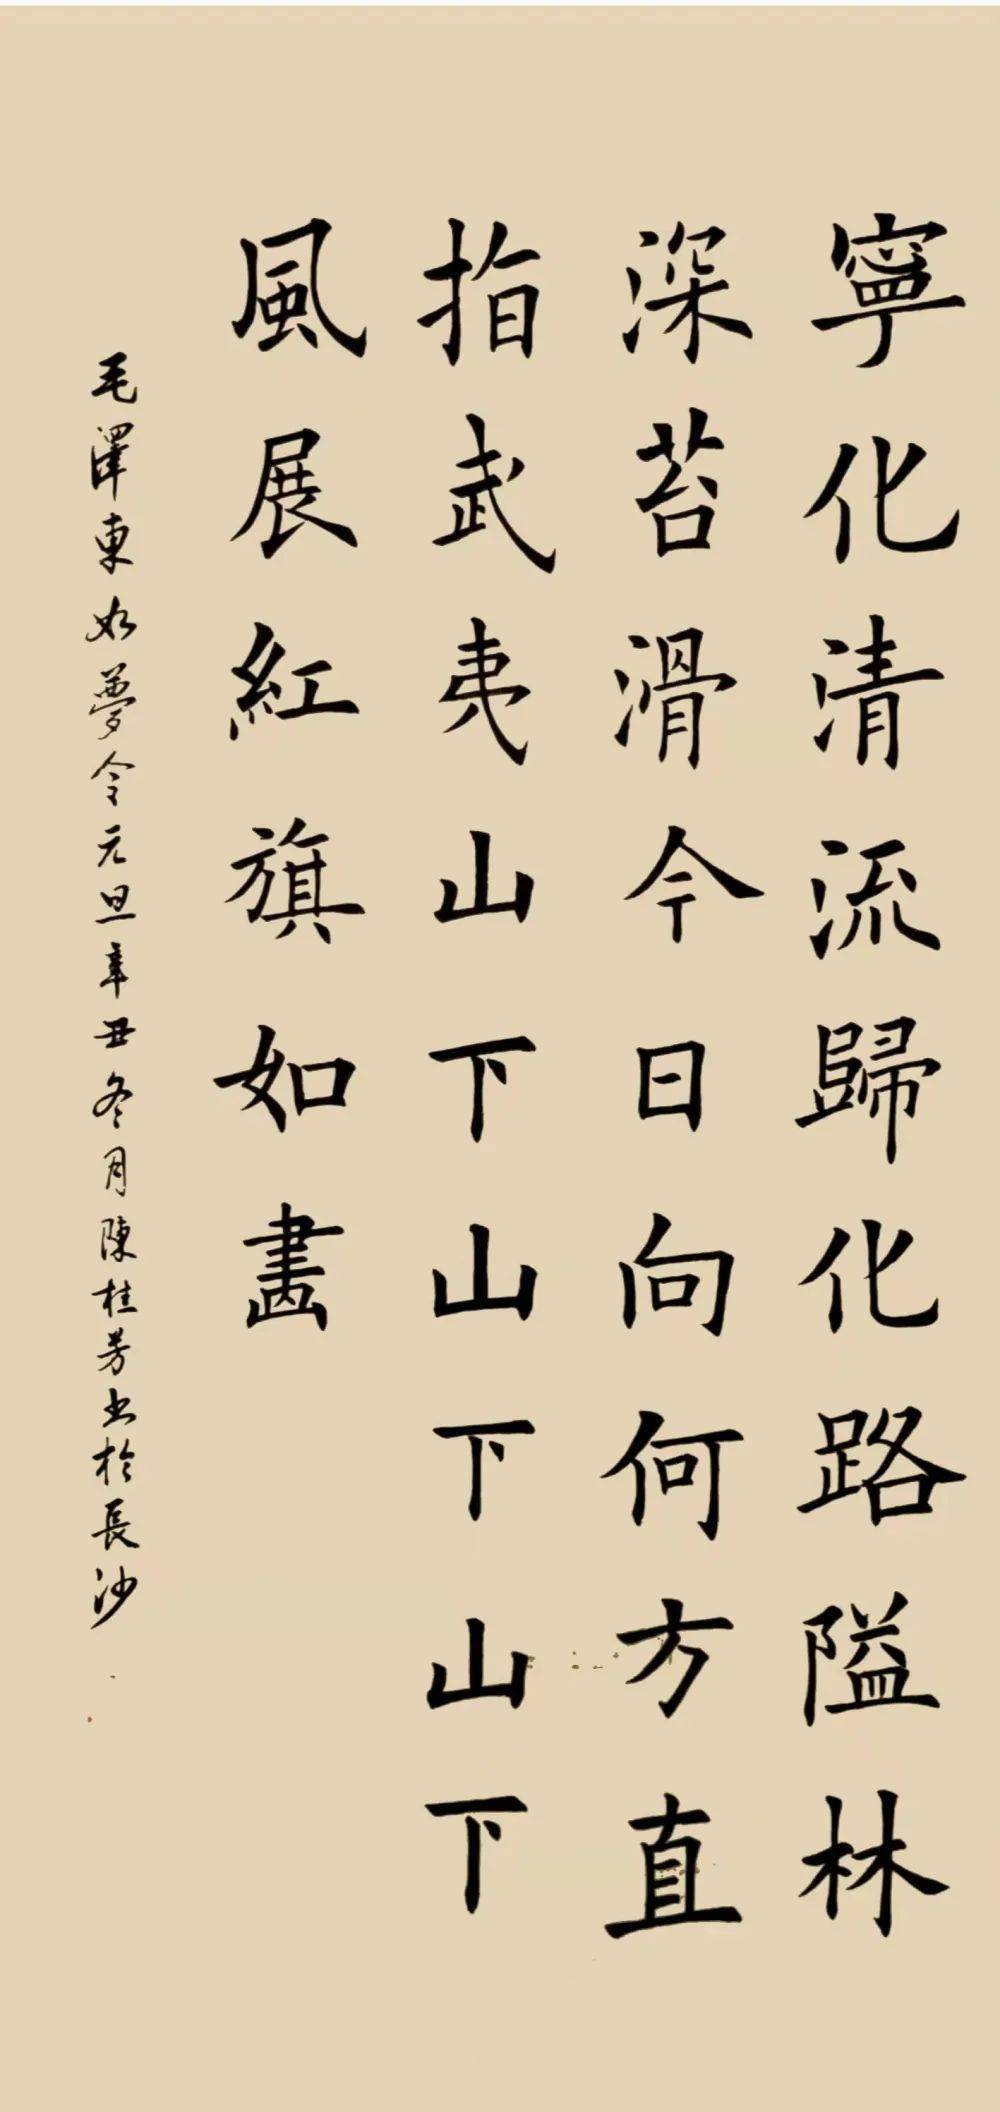 寧化清流歸化路隘林
深苔滑今日向何方直
指武夷山下山下山下
風展紅旗如畫
毛澤東如夢令元旦辛丑冬月陳桂芳书於長沙